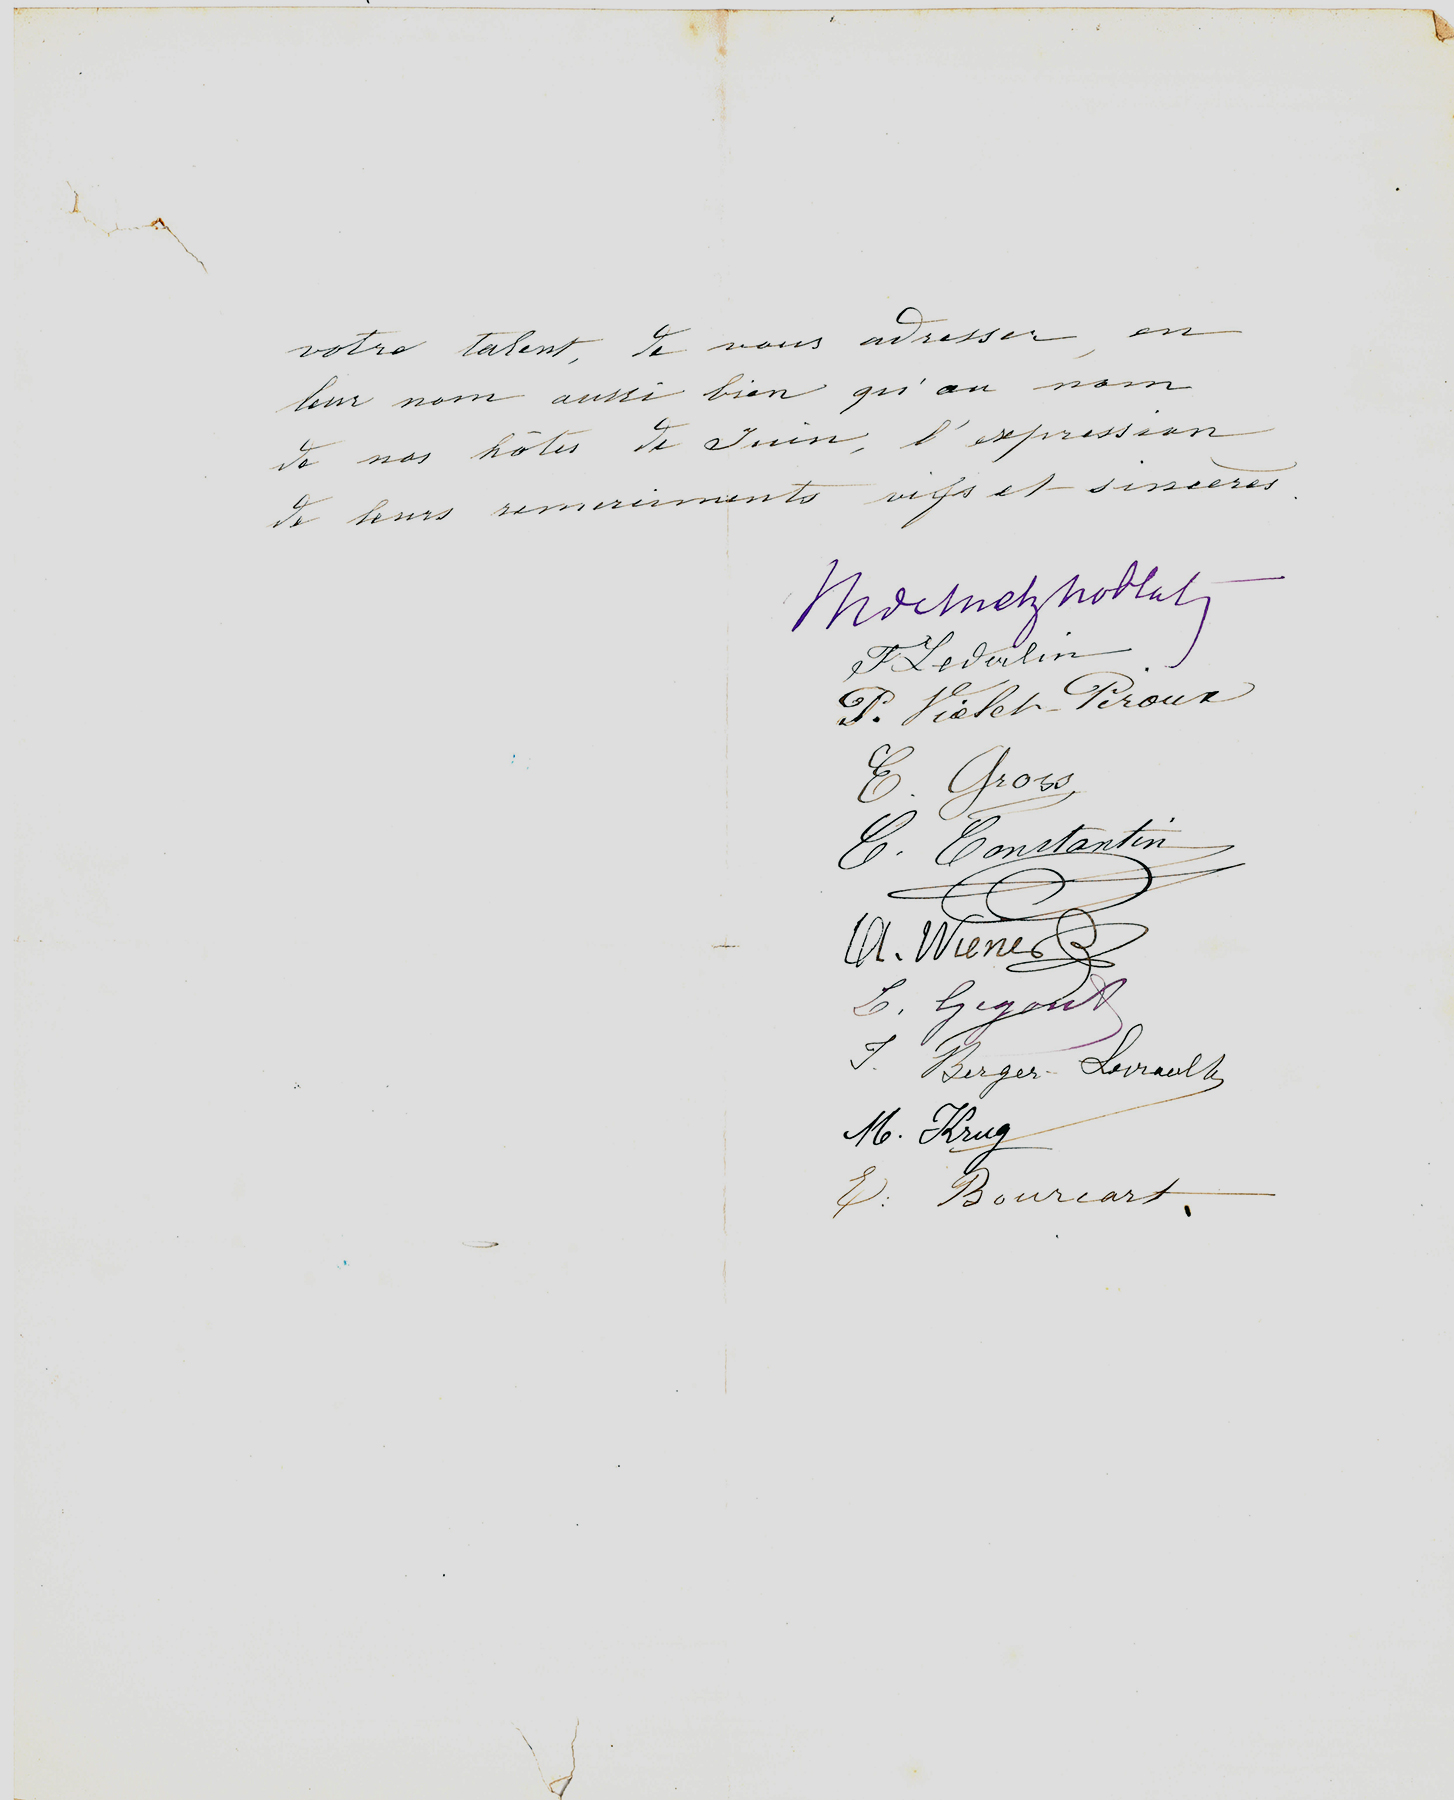 votre talent, de vous adresser, en
leur nom aussi bien qu'au nom
de nos hôtes de Juin, l'expression
de leurs remerciments vifs et sincères.
M de Metz Noblat
F Lederlin
P. Violet-Péroux
E. Gross
C. Constantin
A. Wiener
L. Gegout
F. Berger-Levrault
M. Krug
E. Bourcart.